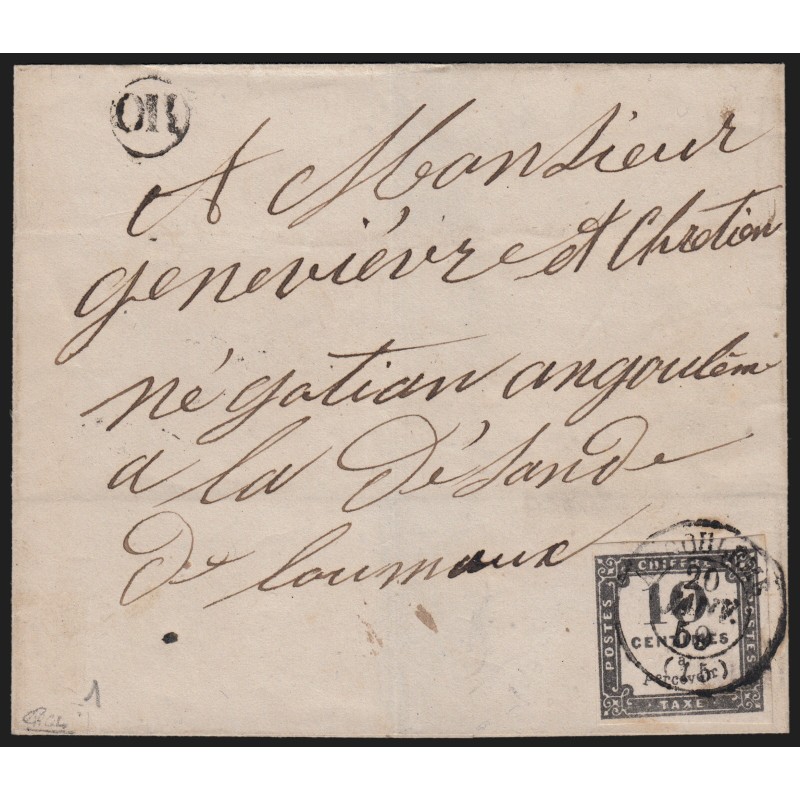 OR
A Monsieur
genevièvre et Chretien
négotian angoulêm
a la Désande
de loumaux
CHIFFRE
POSTES
10
CENTIMES
à
percevoir
TAXE
POSTES
20
59
(15)
1